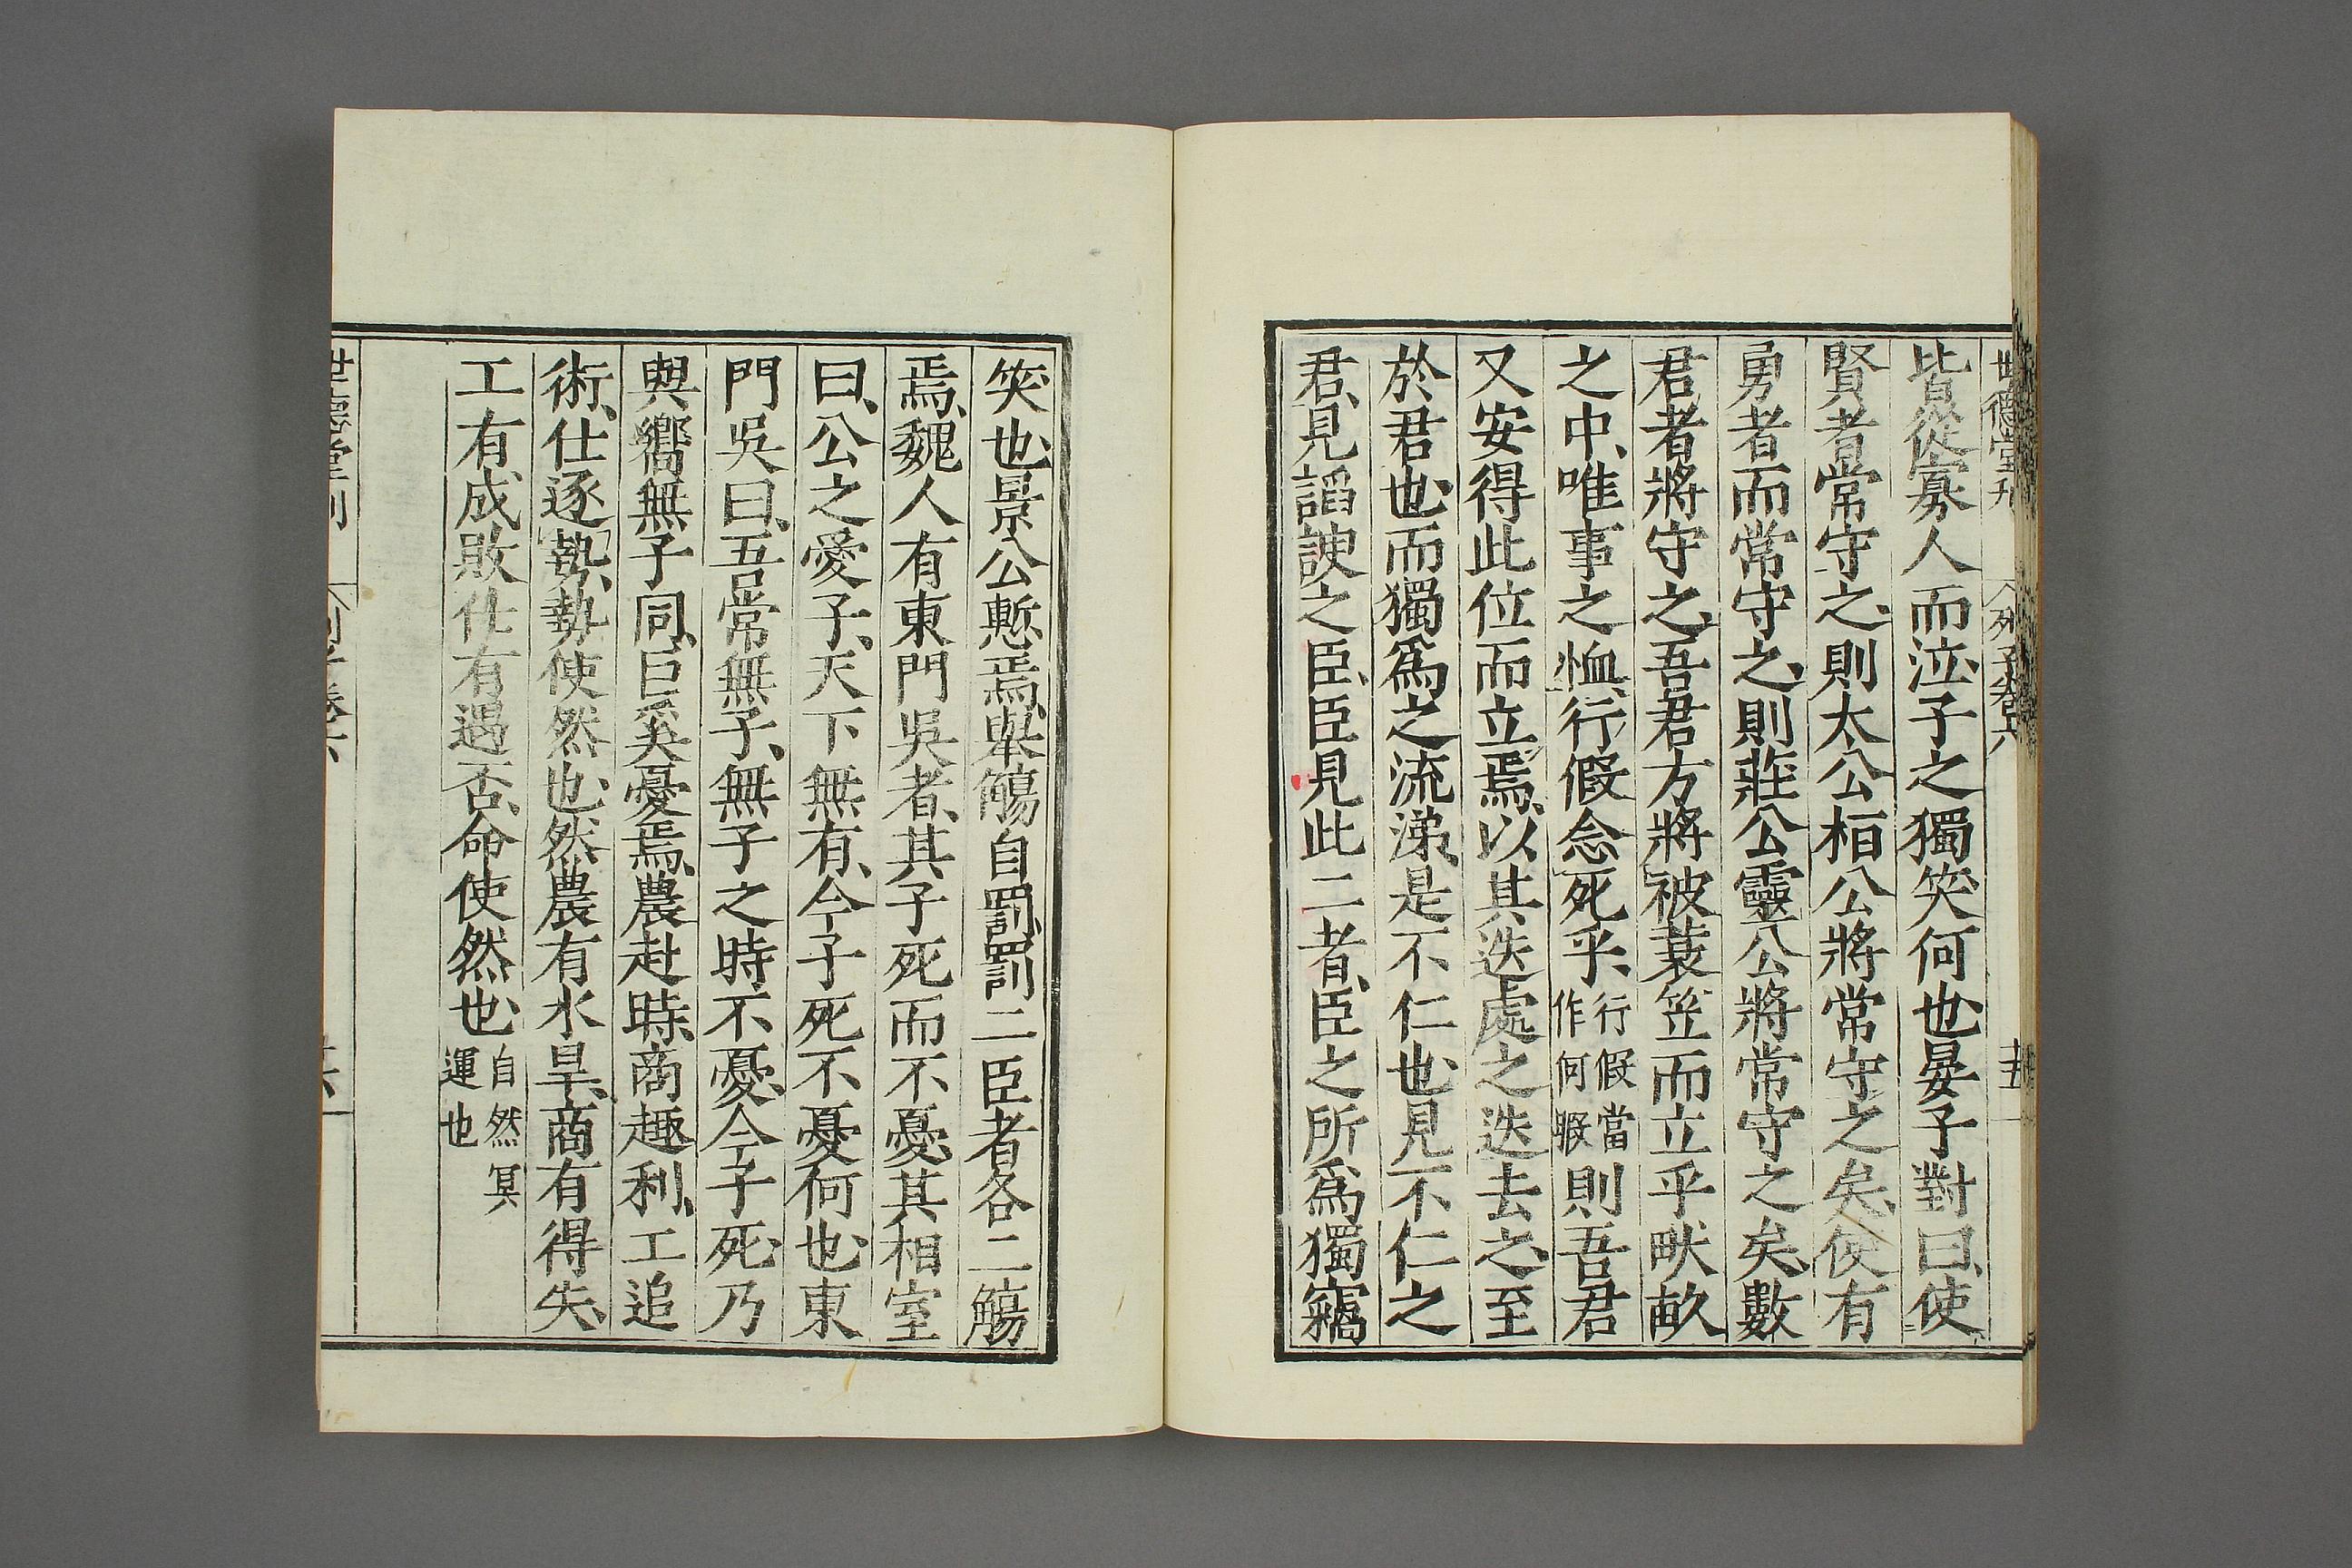 世德堂刊
列子卷六
十五
皆從寡人而泣子之獨笑何也晏子對曰使
賢者常守之則太公桓公將常守之矣使有
勇者而常守之則莊公靈公將常守之矣數
君者將守之吾君方將被蓑笠而立乎畎畝
之中唯事之恤行假念死乎行假當作何暇則吾君
又安得此位而立焉以其迭處之迭去之至
於君也而獨爲之流涕是不仁也見不仁之
君見謟諛之臣臣見此二者臣之所爲獨竊
笑也景公慙焉舉觴自罰罰二臣者各二觴
焉魏人有東門吳者其子死而不憂其相室
曰公之愛子天下無有今子死不憂何也東
門吳曰吾常無子無子之時不憂今子死乃
與嚮無子同臣奚憂焉農赴時商趣利工追
術仕逐勢勢使然也然農有水旱商有得失
工有成敗仕有遇否命使然也自然冥運也
世德堂刊